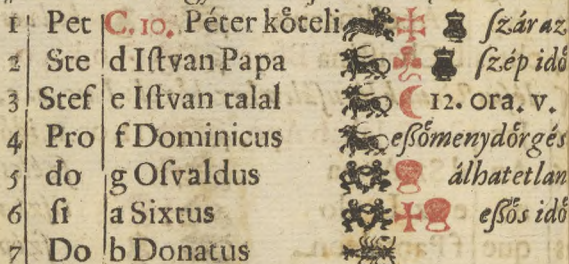 1 Pet C. 10. Péter kőteli ſzáraz
2 Ste d Iſtvan Papa ſzép idő
3 Stef e Iſtvan talal 12. ora. v.
4 Pro f Dominicus eſőmenydőrgés
5 do g Oſvaldus álhatetlan
6 ſi a Sixtus eſős idő
7 Do b Donatus